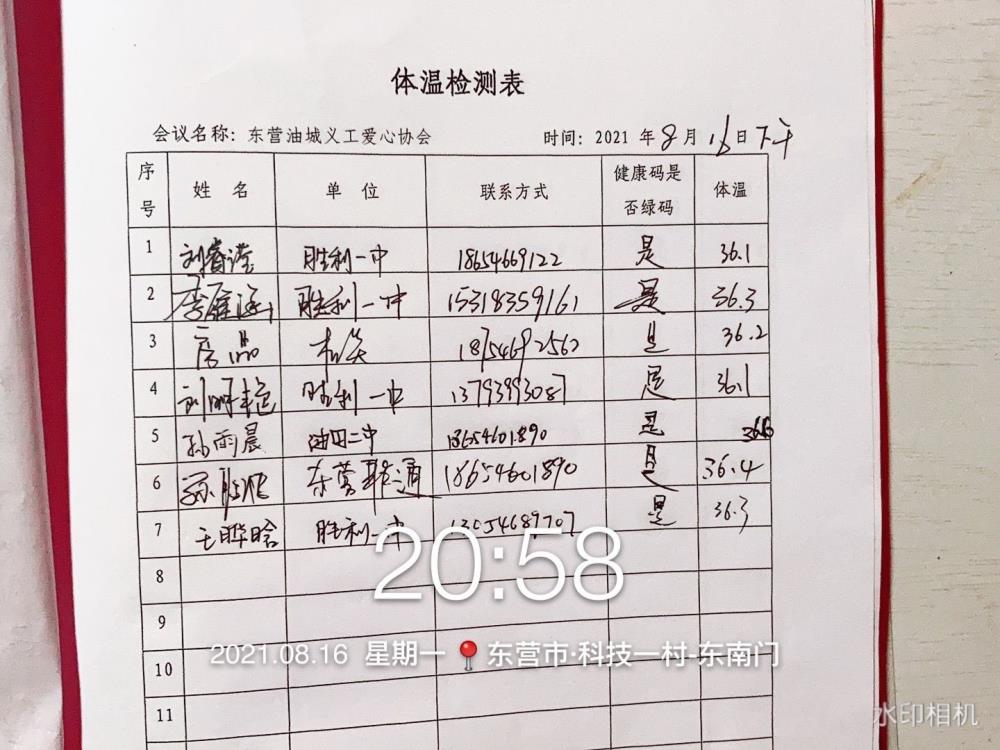 体温检测表
会议名称：东营油城义工爱心协会 时间：2021 年 8 月 16 日 下午
序号 姓 名 单 位 联系方式 健康码是否绿码 体温
1 刘睿滢 胜利一中 18654669122 是 36.1
2 李雁涵 胜利一中 15318359161 是 36.3
3 房晶 18754692562 是 36.2
4 胜利一中 13793993087 是 36.1
5 孙雨晨 油田二中 18654601890 是
6 东营联通 18654601890 是 36.4
7 王晔晗 胜利一中 是 36.3
8
20:58
9
2021.08.16 星期一 东营市·科技一村-东南门
10
11
水印相机